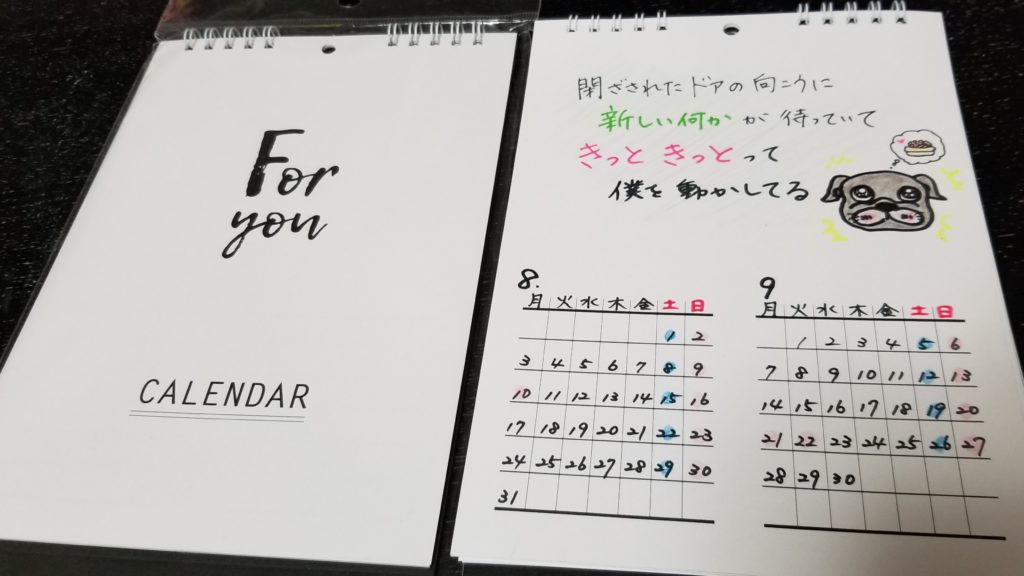 For
you
CALENDAR
閉ざされたドアの向こうに
新しい何かが待っていて
きっと きっとって
僕を動かしてる
8.
月 火 水 木 金 土 日
1 2
3 4 5 6 7 8 9
10 11 12 13 14 15 16
17 18 19 20 21 22 23
24 25 26 27 28 29 30
31
9
月 火 水 木 金 土 日
1 2 3 4 5 6
7 8 9 10 11 12 13
14 15 16 17 18 19 20
21 22 23 24 25 26 27
28 29 30